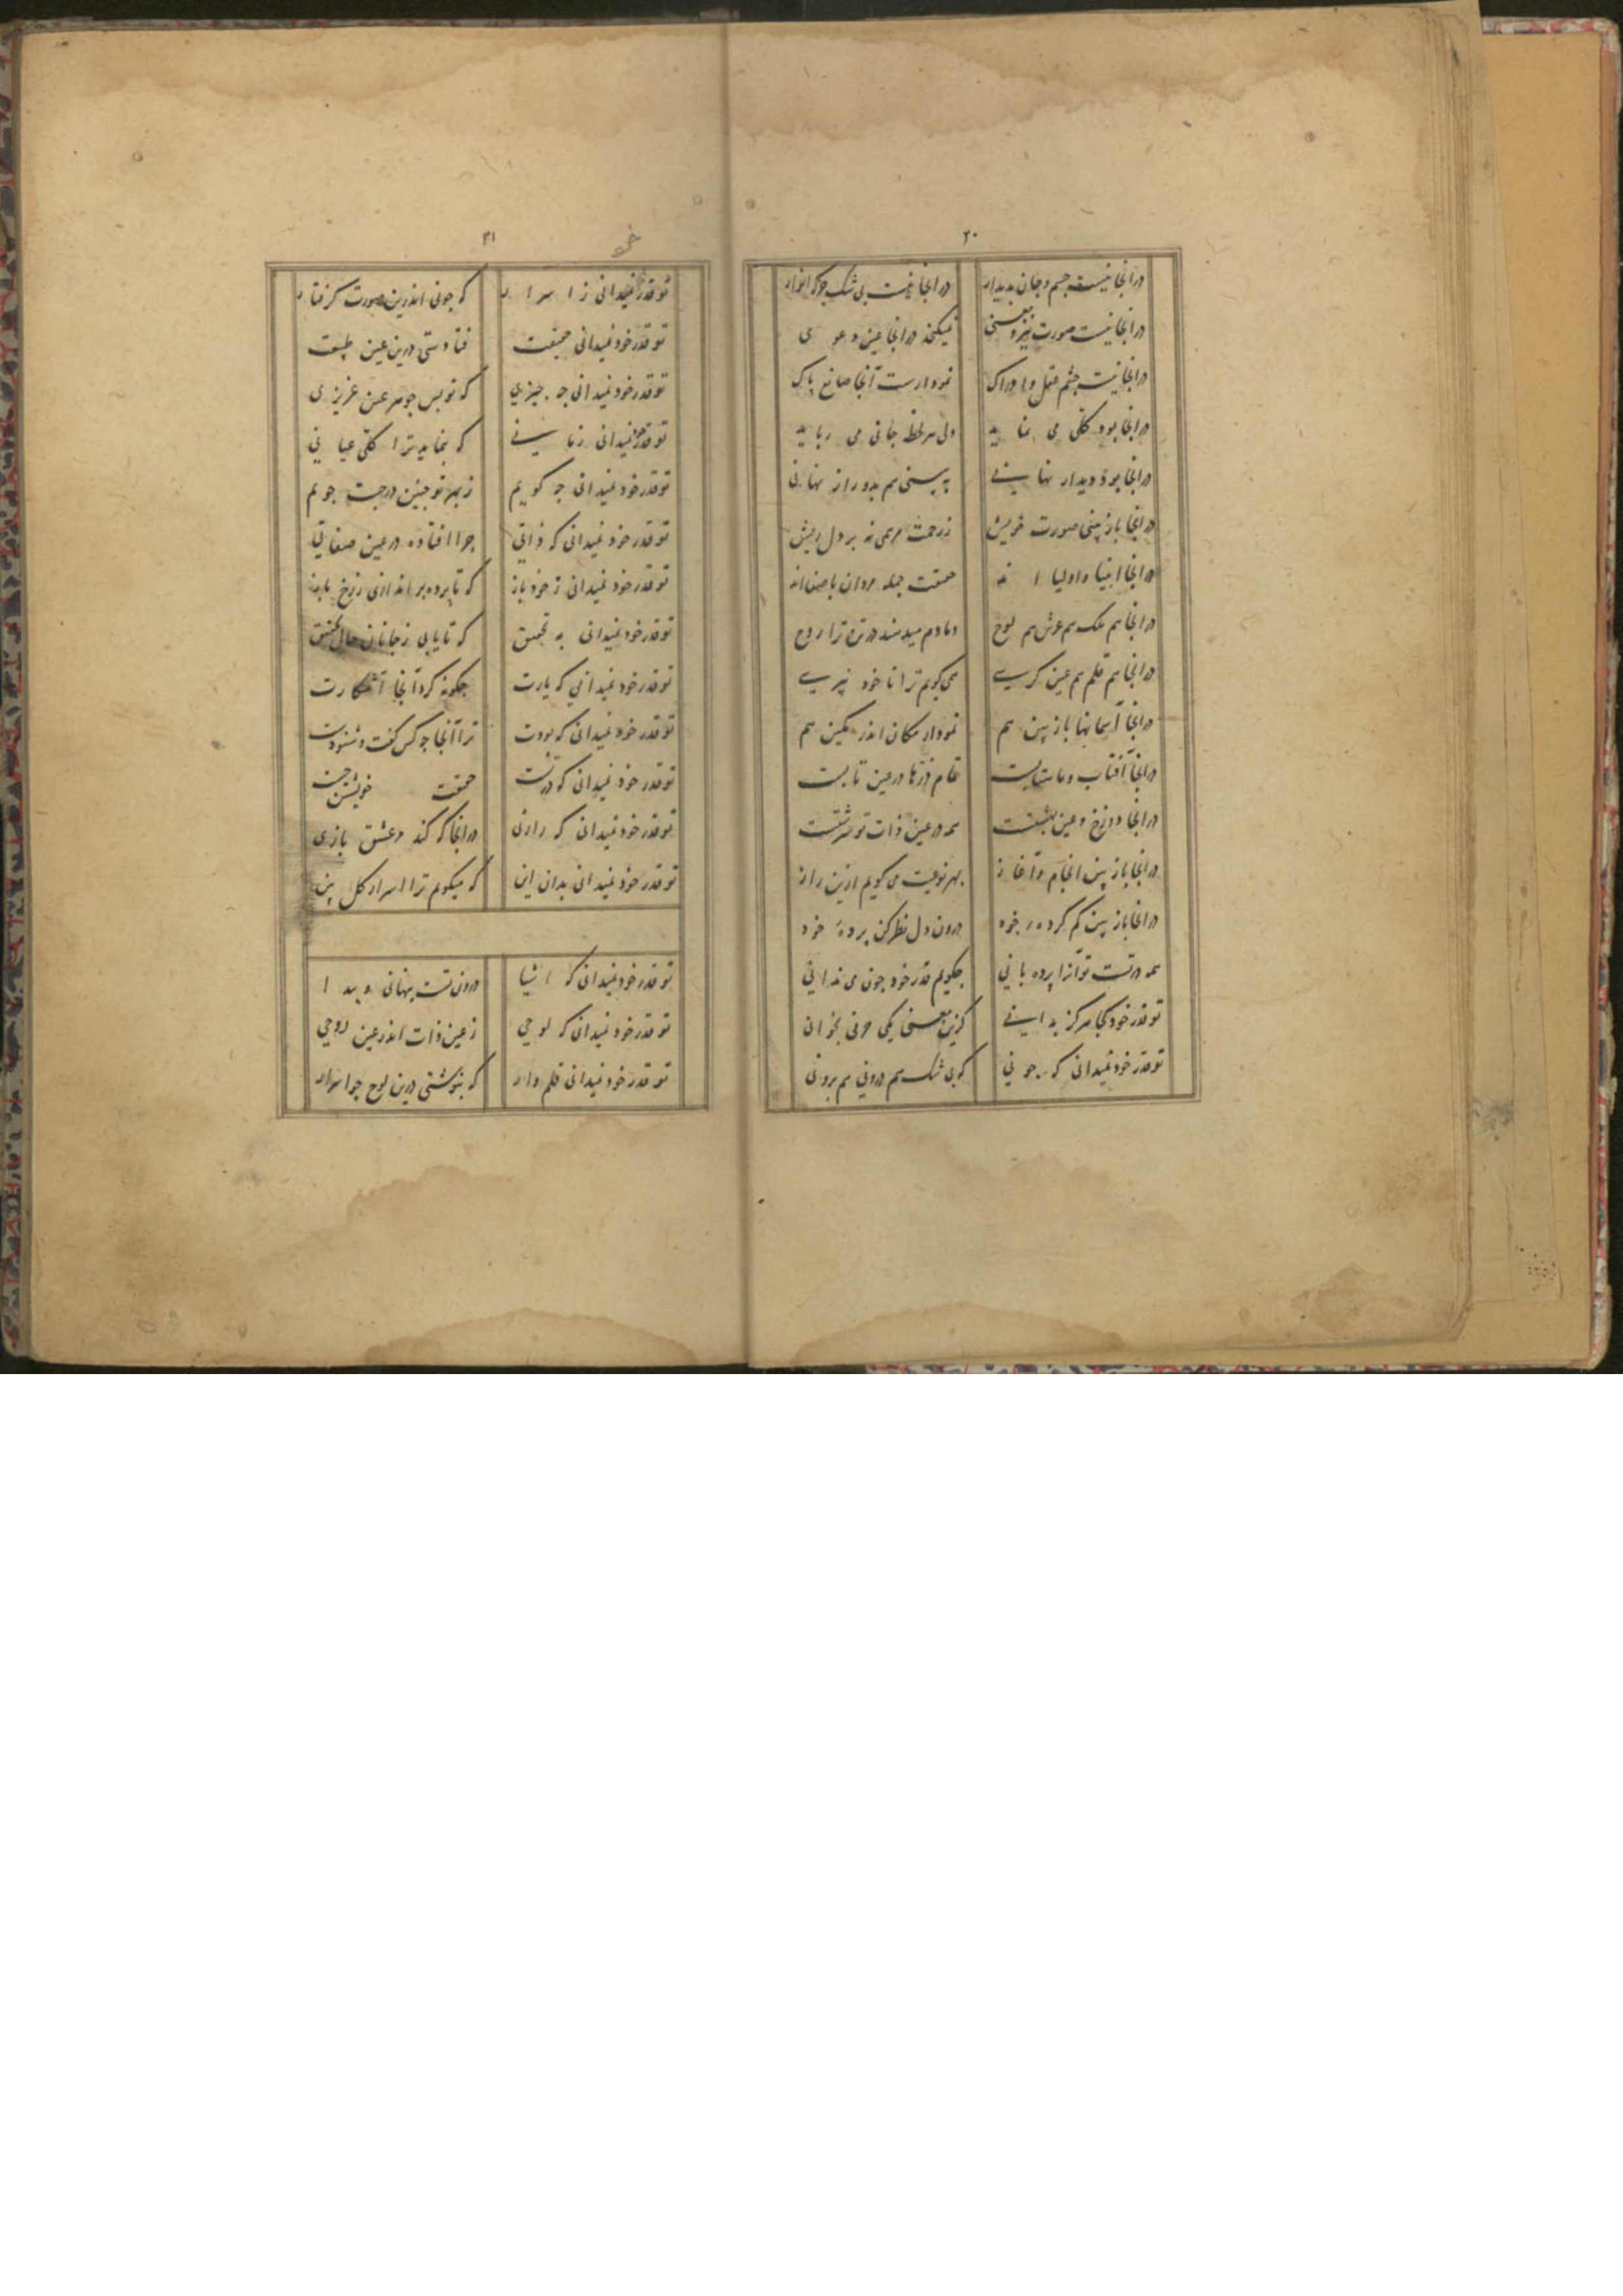 ۲۰
در انجا نیست جسم و جان پدیدار در انجا نیست بی شک جز که انوار
در انجا نیست صورت نیز و معنی نمیکنجد در انجا عین دعوی
در انجا نیست چشم عقل و ادراک نمودارست آنجا صانع پاک
در انجا بود کلی می نماید ولی هر لحظه جانی می رباید
در انجا بود دیدار نهانی ببینی هم بدو راز نهانی
در انجا باز بینی صورت خویش ز رحمت مرهمی نه بر دل ریش
در انجا انبیا و اولیا اند حقیقت جمله مردان با صفااند
در انجا هم ملک هم عرش هم لوح دمادم میدمند در تن ترا روح
در انجا هم قلم هم عین کرسی همی کویم ترا تا خود نپرسی
در انجا آسمانها باز بین هم نمودار مکان اندر مکین هم
در انجا آفتاب و ماهتابست تمام ذرّها در عین تابست
در انجا دوزخ و عین بهشتست همه در عین ذات تو سرشتست
در انجا باز بین انجام و آغاز بهر نوعیت می کویم ازین راز
در انجا باز بین کم کرده خود درون دل نظر کن پردهٔ خود
همه در تست تو آنرا پرده بانی چکویم قدر خود چون می ندانی
تو قدر خود کجا هرکز بدانی کزین معنی یکی حرفی بخوانی
تو قدر خود نمیدانی که چونی که بی شک هم درونی هم برونی
۲۱
تو قدر خود نمیدانی ز اسرار که چونی اندرین صورت کرفتار
تو قدر خود نمیدانی حقیقت فتادستی درین عین طبیعت
تو قدر خود نمیدانی چه چیزی که تو بس جوهر عین عزیزی
تو قدر خود نمیدانی زمانی که بنماید ترا کلّی عیانی
تو قدر خود نمیدانی چه کویم ز بهر تو چنین در جست جویم
تو قدر خود نمیدانی که ذاتی چرا افتاده در عین صفاتی
تو قدر خود نمیدانی ز خود باز که تا پرده براندازی ز رخ باز
تو قدر خود نمیدانی به تحقیق که تا یابی ز جانان حال تحقیق
تو قدر خود نمیدانی که یارت چکونه کرد آنجا آشکارت
تو قدر خود نمیدانی که بودت ترا آنجا چو کس کفت و شنودت
تو قدر خود نمیدانی که در تست حقیقت خویشتن جست
تو قدر خود نمیدانی که رازی در انجا که کند در عشق بازی
تو قدر خود نمیدانی بدان این که میکویم ترا اسرار کل بین
تو قدر خود نمیدانی که اشیا درون تست پنهانی و پیدا
تو قدر خود نمیدانی که لوحی ز عین ذات اندر عین روحی
تو قدر خود نمیدانی قلم وار که بنوشتی درین لوح چو اسرار